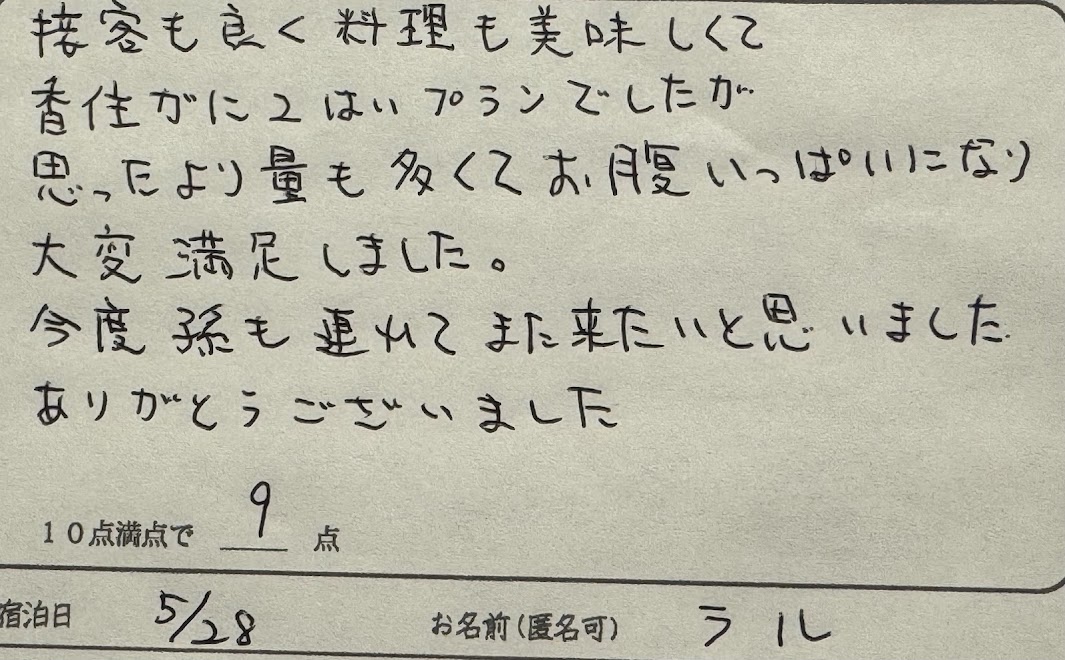 接客も良く料理も美味しくて
香住がに2はいプランでしたが
思ったより量も多くてお腹いっぱいになり
大変満足しました。
今度孫も連れてまた来たいと思いました
ありがとうございました
10点満点で 9 点
宿泊日 5/28 お名前(匿名可) ラル